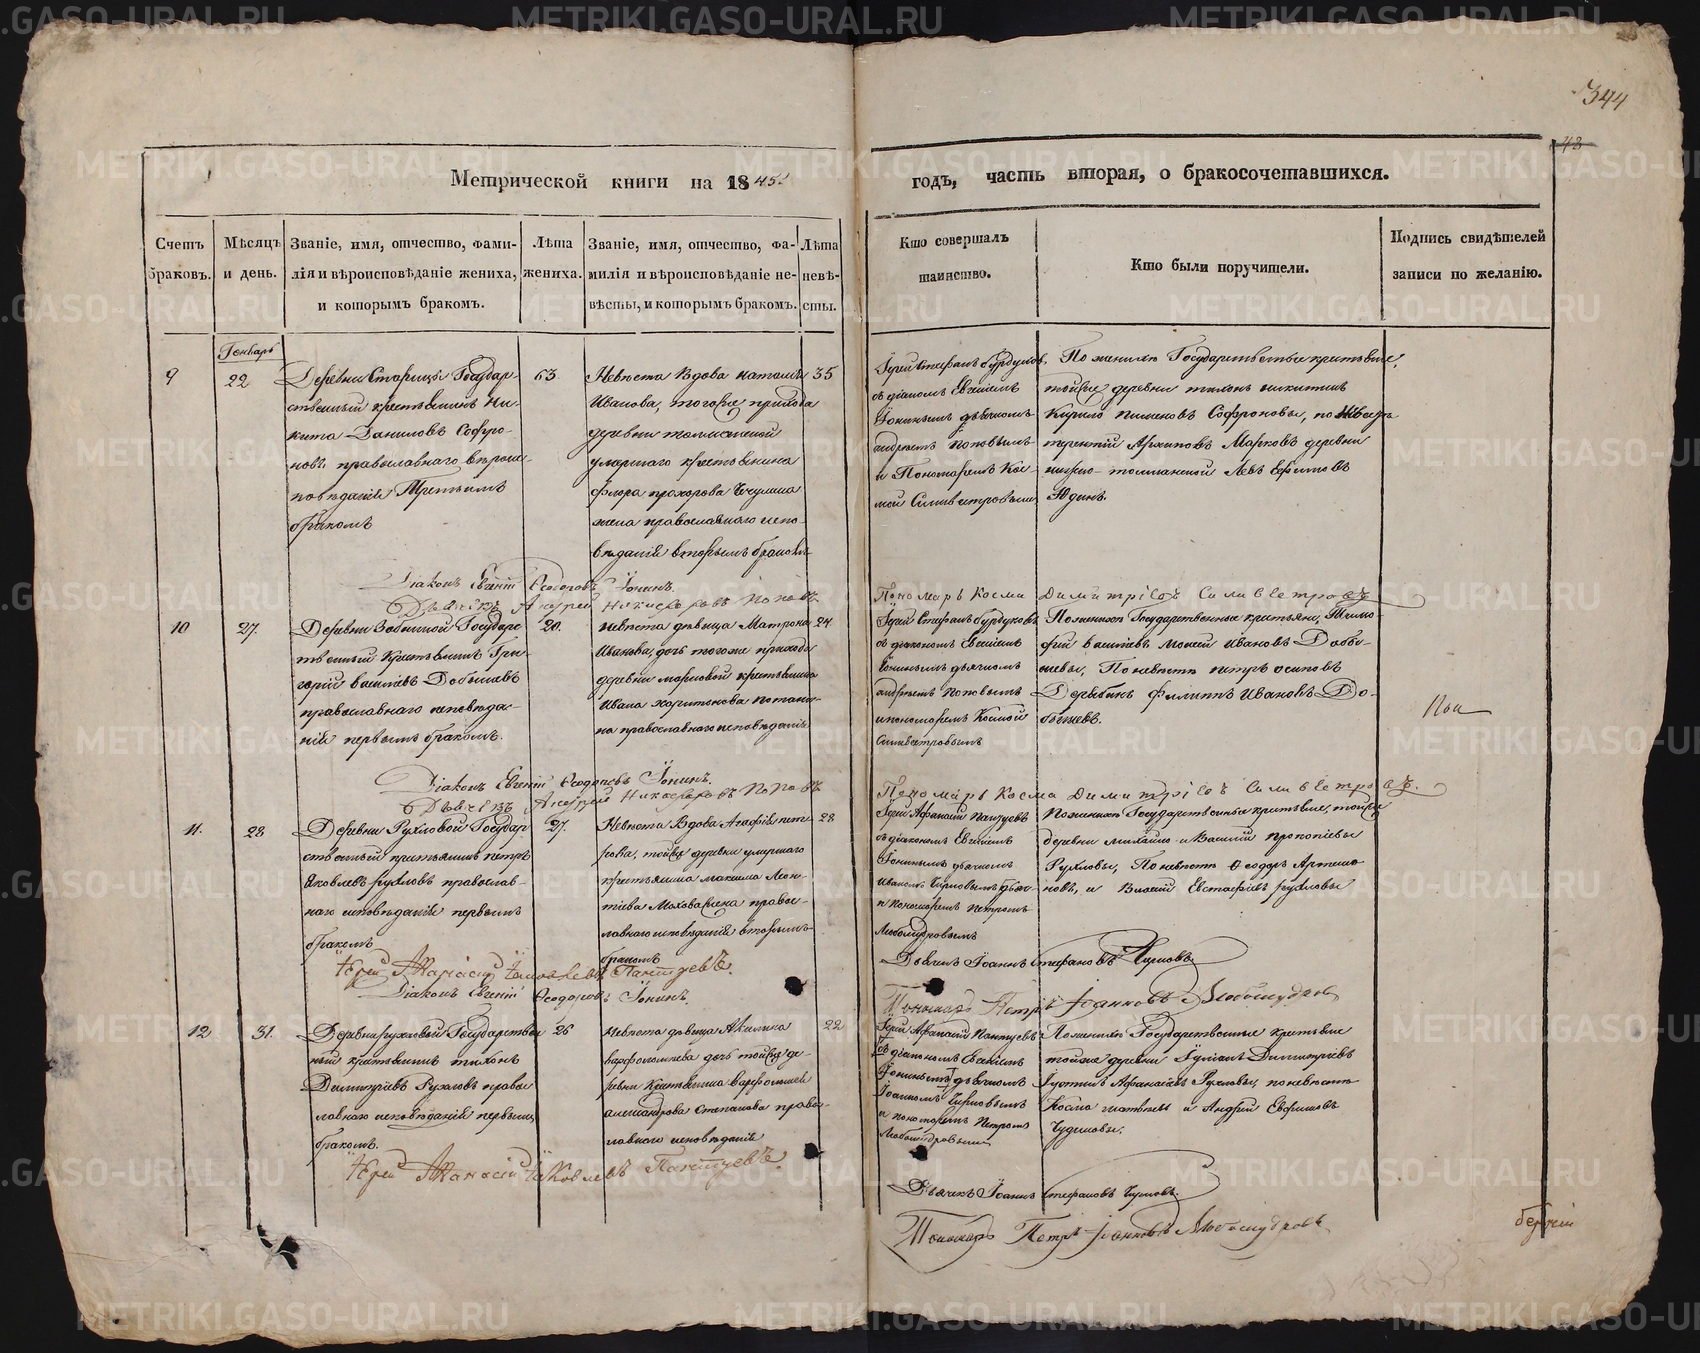 344
48
Метрической книги на 1845
годъ, часть вторая, о бракосочетавшихся.
Счетъ браковъ.
Мѣсяцъ и день.
Званіе, имя, отчество, фами-
лія и вѣроисповѣданіе жениха,
и которымъ бракомъ.
Лѣта
жениха.
Званіе, имя, отчество, фа-
милія и вѣроисповѣданіе не-
вѣсты, и которымъ бракомъ.
Лѣта
невѣ-
сты.
Кто совершалъ
таинство.
Кто были поручители.
Подпись свидѣтелей
записи по желанію.
9
22
Деревни Старицы Государ-
ственный крестьянинъ Ни-
кита Даниловъ Софро-
новъ православнаго вѣроис-
повѣданія Третьимъ
бракомъ
63
Невѣста Вдова Наталья
Иванова, тогоже прихода
деревни
умершаго крестьянина
Флора Прохорова
жена православнаго испо-
вѣданія вторымъ бракомъ
35
Іерей Стефанъ Бурдуковъ
съ діакономъ Евгеніемъ
Іонинымъ дьячкомъ
Андреемъ Поповымъ
и Пономаремъ Кос-
мой Сильвестровымъ
По женихѣ Государственные крестьяне,
тойже деревни Тихонъ Никитинъ
Кирило Пименовъ Софроновы, по невѣстѣ
терентій Архиповъ Марковъ деревни
Левъ Ефимовъ
Юдинъ.
Діаконъ Евгеній Ѳеодоровъ Іонинъ.
Дьячекъ Андрей Никифоровъ Поповъ
Пономарь Косма Димитріевъ Сильвестровъ
10
27.
Деревни Государс-
твенный Крестьянинъ Гри-
горій Васильевъ Добышевъ
православнаго исповѣда-
нія первымъ бракомъ.
20.
Невѣста дѣвица Матрона
Иванова, дочь тогоже прихода
деревни Марковой крестьянина
Ивана Харитонова Потани-
на православнаго исповѣданія
24
Іерей Стефанъ Бурдуковъ
съ діакономъ Евгеніемъ
Іонинымъ дьячкомъ
Андреемъ Поповымъ
и пономаремъ Космой
Сильвестровымъ
По женихѣ Государственные крестьяне, Тимо-
фей Васильевъ Моисей Ивановъ Добы-
шевы, По невѣстѣ Петръ Осиповъ
Филиппъ Ивановъ До-
бышевъ.
Діаконъ Евгеній Ѳеодоровъ Іонинъ.
Дьячекъ Андрей Никифоровъ Поповъ
Пономарь Косма Димитріевъ Сильвестровъ.
11.
28
Деревни Рухловой Государ-
ственный крестьянинъ Петръ
Яковлевъ Рухловъ православ-
наго исповѣданія первымъ
бракомъ
27.
Невѣста Вдова Агафія Пет-
рова, тойже деревни умершаго
крестьянина Максима Леон-
тіева жена право-
славнаго исповѣданія вторымъ
бракомъ
28
Іерей Афанасій Пантуевъ
съ діакономъ Евгеніемъ
Іонинымъ дьячкомъ
Иваномъ Чирковымъ
и пономаремъ Петромъ
Любомудровымъ
По женихѣ Государственные крестьяне, тойже
деревни Михайло и Василій Прокопіевы
Рухловы, По невѣстѣ Ѳеодоръ Артемо-
новъ, и Евстафіевъ Рухловы
Іерей Аѳанасій Іаковлевъ Пантуевъ.
Діаконъ Евгеній Ѳеодоровъ Іонинъ.
Дьячекъ Іоаннъ Стефановъ Чирковъ
Пономарь Петръ Іоанновъ Любомудровъ
12
31.
Деревни Рухловой Государствен-
ный крестьянинъ Тихонъ
Димитріевъ Рухловъ право-
славнаго исповѣданія первымъ
бракомъ.
26
Невѣста дѣвица Акилина
Варфоломеева дочь тойже де-
ревни Крестьянина Варфоломея
Александрова Степанова право-
славнаго исповѣданія
22
Іерей Афанасій Пантуевъ
съ діакономъ Евгеніемъ
Іонинымъ дьячкомъ
Іоанномъ Чирковымъ
и пономаремъ Петромъ
Любомудровымъ
По женихѣ Государственные крестьяне
тойже деревни Димитріевъ
Афанасіевъ Рухловы, по невѣстѣ
Косма Матвеевъ и Андрей Евфимовъ
Іерей Аѳанасій Іаковлевъ Пантуевъ.
Дьячекъ Іоаннъ Стефановъ Чирковъ.
Пономарь Петръ Іоанновъ Любомудровъ
METRIKI.GASO-URAL.RU